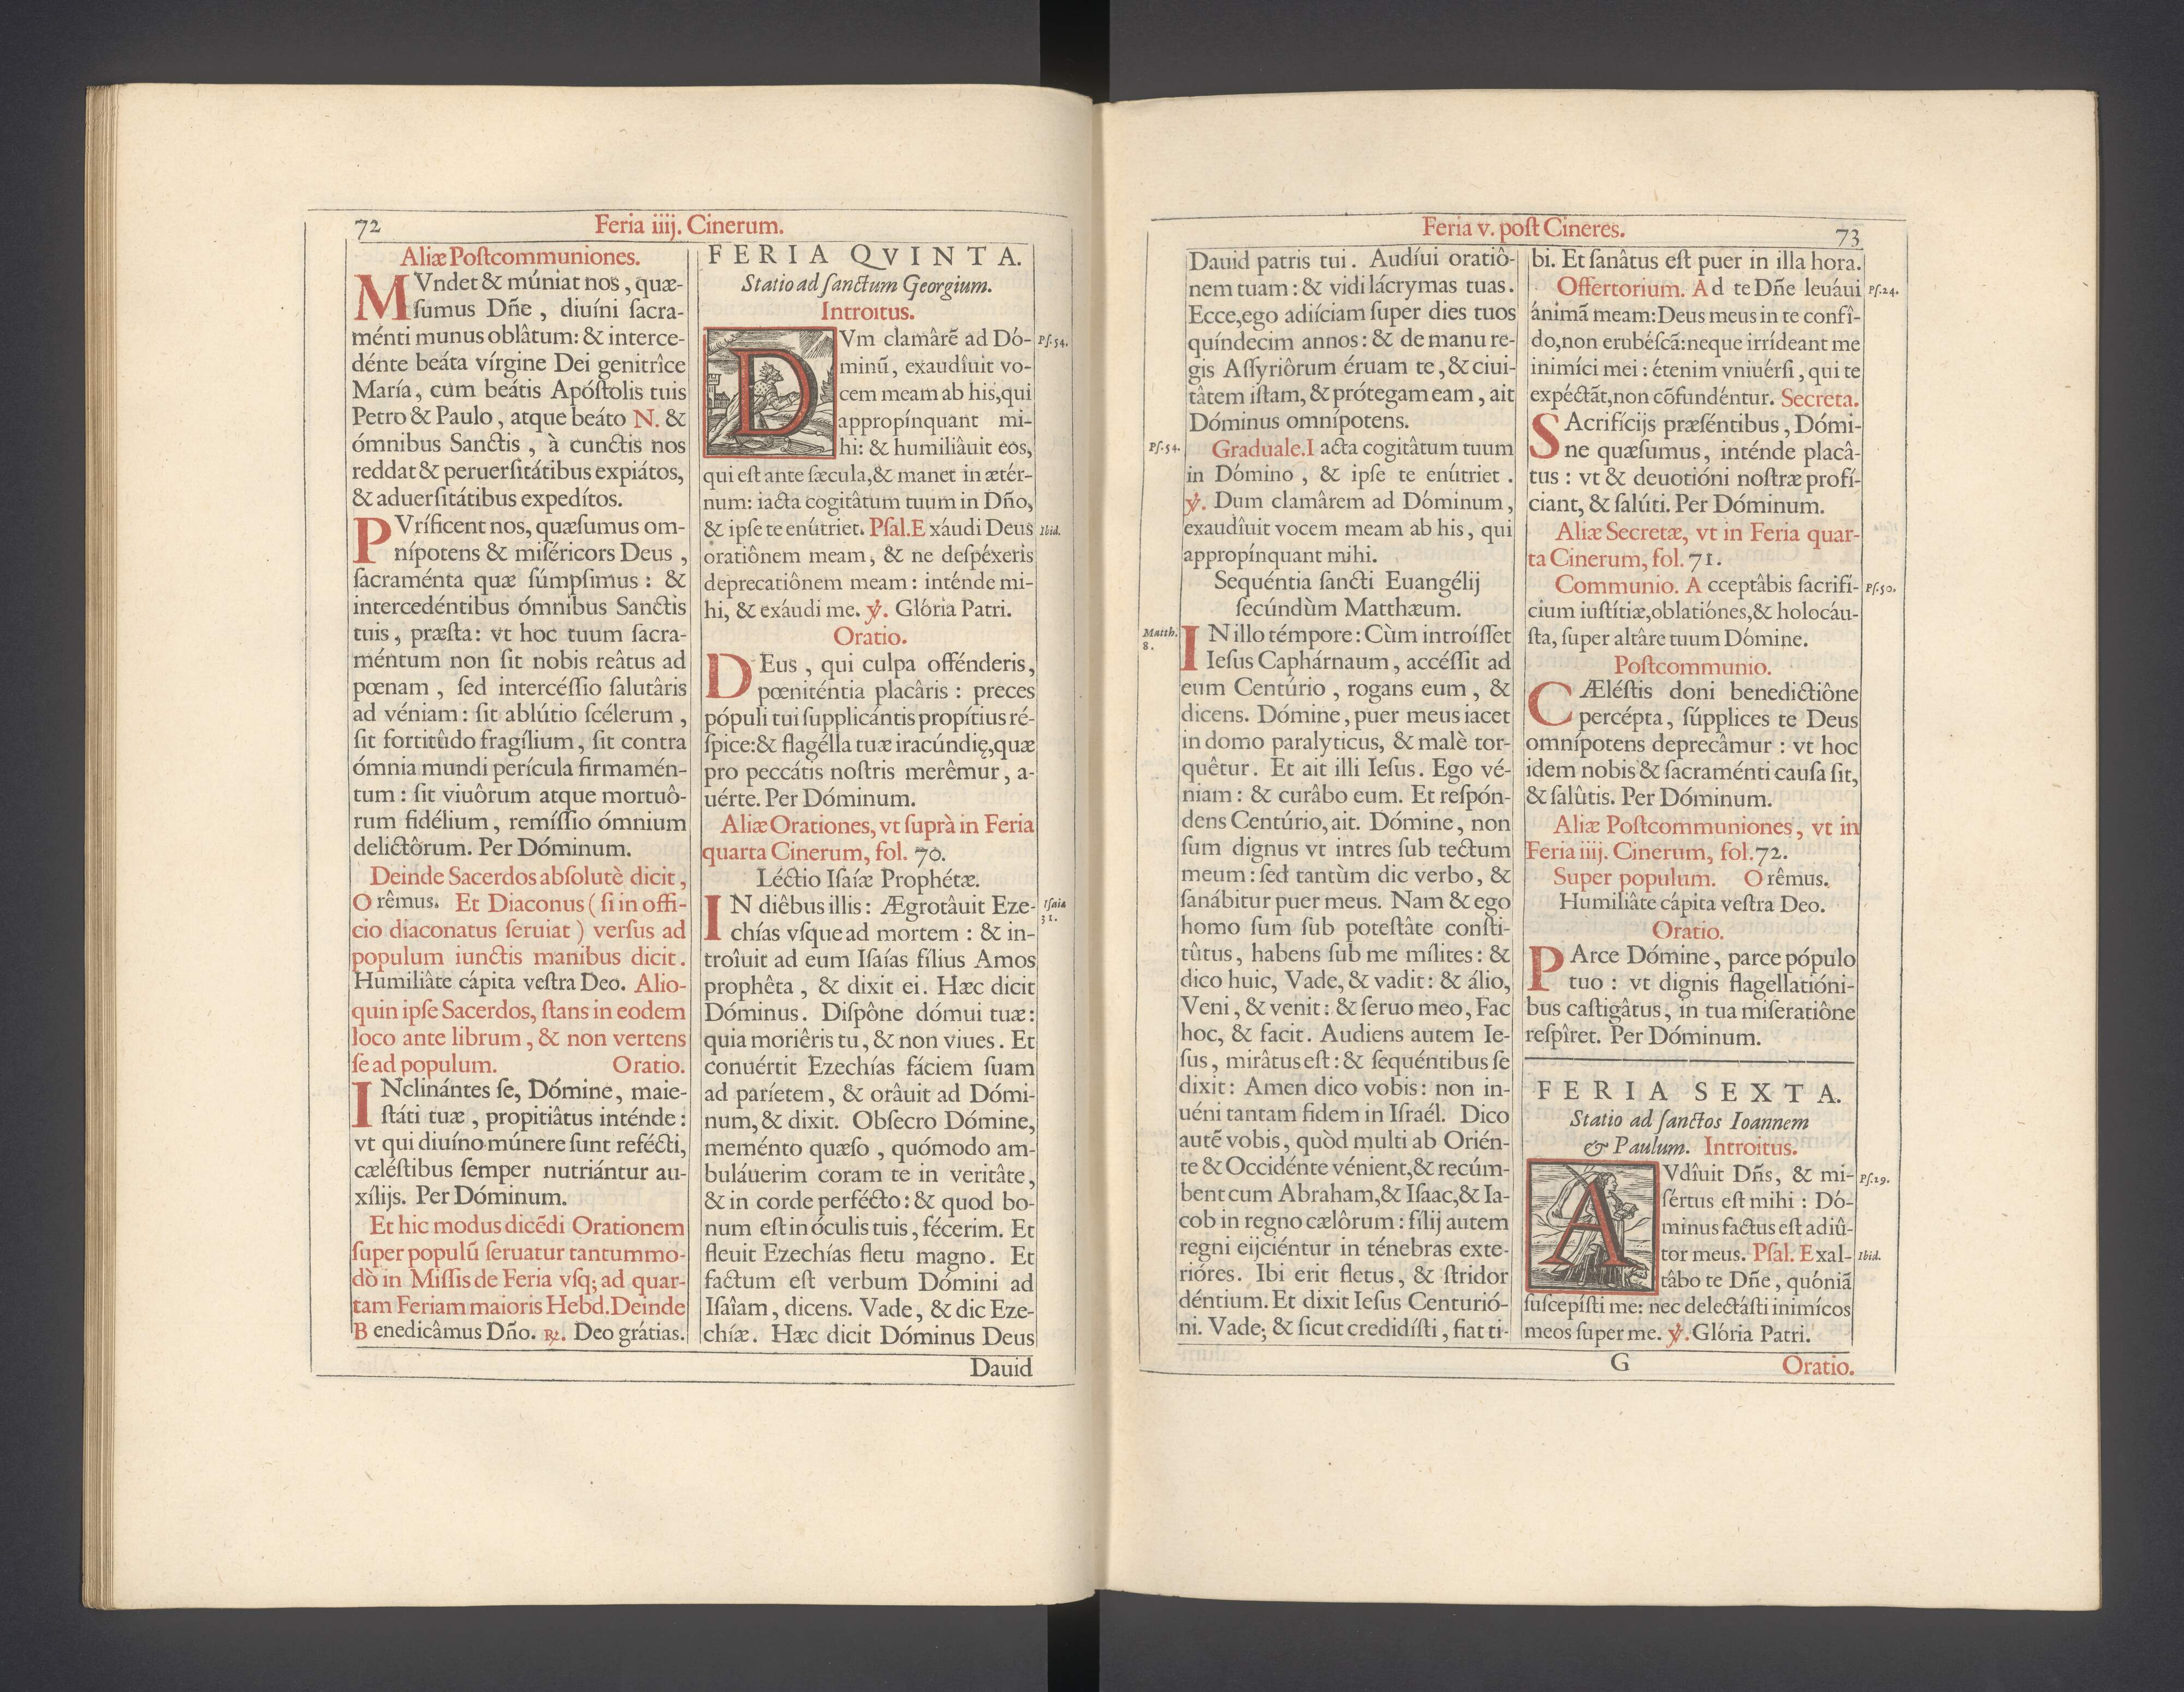 72
Feria iiij. Cinerum.
Aliæ Poſtcommuniones.
MVndet & múniat nos, quæ-
ſumus Dñe, diuíni ſacra-
ménti munus oblâtum: & interce-
dénte beáta vírgine Dei genitrîce
María, cum beátis Apóſtolis tuis
Petro & Paulo, atque beáto N. &
ómnibus Sanctis, à cunctis nos
reddat & peruerſitátibus expiátos,
& aduerſitátibus expedítos.
PVríficent nos, quæſumus om-
nípotens & miſéricors Deus,
ſacraménta quæ ſúmpſimus: &
intercedéntibus ómnibus Sanctis
tuis, præſta: vt hoc tuum ſacra-
méntum non ſit nobis reâtus ad
pœnam, ſed intercéſſio ſalutâris
ad véniam: ſit ablútio ſcélerum,
ſit fortitûdo fragílium, ſit contra
ómnia mundi perícula firmamén-
tum: ſit viuôrum atque mortuô-
rum fidélium, remíſſio ómnium
delictôrum. Per Dóminum.
Deinde Sacerdos abſolutè dicit,
Orêmus. Et Diaconus (ſi in offi-
cio diaconatus ſeruiat) verſus ad
populum iunctis manibus dicit.
Humiliâte cápita veſtra Deo. Alio-
quin ipſe Sacerdos, ſtans in eodem
loco ante librum, & non vertens
ſe ad populum. Oratio.
INclinántes ſe, Dómine, maie-
ſtáti tuæ, propitiâtus inténde:
vt qui diuíno múnere ſunt reféćti,
cæléſtibus ſemper nutriántur au-
xílijs. Per Dóminum.
Et hic modus dicẽdi Orationem
ſuper populũ ſeruatur tantummo-
dò in Miſſis de Feria vſq; ad quar-
tam Feriam maioris Hebd. Deinde
Benedicâmus Dño. ℟. Deo grátias.
FERIA QVINTA.
Statio ad ſanctum Georgium.
Introitus.
DVm clamârẽ ad Dó-
minũ, exaudîuit vo-
cem meam ab his, qui
appropínquant mi-
hi: & humiliâuit eos,
qui eſt ante ſæcula, & manet in ætér-
num: iacta cogitâtum tuum in Dño,
& ipſe te enútriet. Pſal. Exáudi Deus
oratiônem meam, & ne deſpéxeris
deprecatiônem meam: inténde mi-
hi, & exáudi me. ℣. Glória Patri.
Pſ. 54.
Ibid.
Oratio.
DEus, qui culpa offénderis,
pœniténtia placâris: preces
pópuli tui ſupplicántis propítius ré-
ſpice: & flagélla tuæ iracúndię, quæ
pro peccátis noſtris merêmur, a-
uérte. Per Dóminum.
Aliæ Orationes, vt ſuprà in Feria
quarta Cinerum, fol. 70.
Léctio Iſaíæ Prophétæ.
IN diêbus illis: Ægrotâuit Eze-
chías vſque ad mortem: & in-
troîuit ad eum Iſaías fílius Amos
prophêta, & dixit ei. Hæc dicit
Dóminus. Diſpône dómui tuæ:
quia moriêris tu, & non viues. Et
conuértit Ezechías fáciem ſuam
ad paríetem, & orâuit ad Dómi-
num, & dixit. Obſecro Dómine,
meménto quæſo, quómodo am-
buláuerim coram te in veritâte,
& in corde perfécto: & quod bo-
num eſt in óculis tuis, fécerim. Et
fleuit Ezechías fletu magno. Et
factum eſt verbum Dómini ad
Iſaîam, dicens. Vade, & dic Eze-
chíæ. Hæc dicit Dóminus Deus
Iſaia
Dauid
Feria v. poſt Cineres.
73
Dauid patris tui. Audíui oratiô-
nem tuam: & vidi lácrymas tuas.
Ecce, ego adíiciam ſuper dies tuos
quíndecim annos: & de manu re-
gis Aſſyriôrum éruam te, & ciui-
tâtem iſtam, & prótegam eam, ait
Dóminus omnípotens.
Pſ. 54.
Graduale. Iacta cogitâtum tuum
in Dómino, & ipſe te enútriet.
℣. Dum clamârem ad Dóminum,
exaudîuit vocem meam ab his, qui
appropínquant mihi.
Sequéntia ſancti Euangélij
ſecúndùm Matthæum.
Matth.
8.
IN illo témpore: Cùm introíſſet
Ieſus Caphárnaum, accéſſit ad
eum Centúrio, rogans eum, &
dicens. Dómine, puer meus iacet
in domo paralyticus, & malè tor-
quêtur. Et ait illi Ieſus. Ego vé-
niam: & curâbo eum. Et reſpón-
dens Centúrio, ait. Dómine, non
ſum dignus vt intres ſub tectum
meum: ſed tantùm dic verbo, &
ſanábitur puer meus. Nam & ego
homo ſum ſub poteſtâte conſti-
tûtus, habens ſub me mílites: &
dico huic, Vade, & vadit: & álio,
Veni, & venit: & ſeruo meo, Fac
hoc, & facit. Audiens autem Ie-
ſus, mirâtus eſt: & ſequéntibus ſe
dixit: Amen dico vobis: non in-
uéni tantam fidem in Iſraél. Dico
autẽ vobis, quòd multi ab Orién-
te & Occidénte vénient, & recúm-
bent cum Abraham, & Iſaac, & Ia-
cob in regno cælôrum: fílij autem
regni eijciéntur in ténebras exte-
rióres. Ibi erit fletus, & ſtridor
déntium. Et dixit Ieſus Centurió-
ni. Vade; & ſicut credidíſti, fiat ti-
bi. Et ſanâtus eſt puer in illa hora.
Offertorium. Ad te Dñe leuáui
ánimã meam: Deus meus in te confî-
do, non erubéſcã: neque irrídeant me
inimíci mei: étenim vniuérſi, qui te
expéctãt, non cõfundéntur. Secreta.
Pſ. 24.
SAcrifícijs præſéntibus, Dómi-
ne quæſumus, inténde placâ-
tus: vt & deuotióni noſtræ profí-
ciant, & ſalúti. Per Dóminum.
Aliæ Secretæ, vt in Feria quar-
ta Cinerum, fol. 71.
Communio. Acceptâbis ſacrifí-
cium iuſtítiæ, oblatiónes, & holocáu-
ſta, ſuper altâre tuum Dómine.
Pſ. 50.
Poſtcommunio.
CÆléſtis doni benedictiône
percépta, ſúpplices te Deus
omnípotens deprecâmur: vt hoc
idem nobis & ſacraménti cauſa ſit,
& ſalûtis. Per Dóminum.
Aliæ Poſtcommuniones, vt in
Feria iiij. Cinerum, fol. 72.
Super populum. Orêmus.
Humiliâte cápita veſtra Deo.
Oratio.
PArce Dómine, parce pópulo
tuo: vt dignis flagellatióni-
bus caſtigâtus, in tua miſeratiône
reſpîret. Per Dóminum.
FERIA SEXTA.
Statio ad ſanctos Ioannem
& Paulum. Introitus.
AVdîuit Dñs, & mi-
ſértus eſt mihi: Dó-
minus factus eſt adiû-
tor meus. Pſal. Exal-
tâbo te Dñe, quóniã
ſuſcepíſti me: nec delectáſti inimícos
meos ſuper me. ℣. Glória Patri.
Pſ. 29.
Ibid.
G
Oratio.